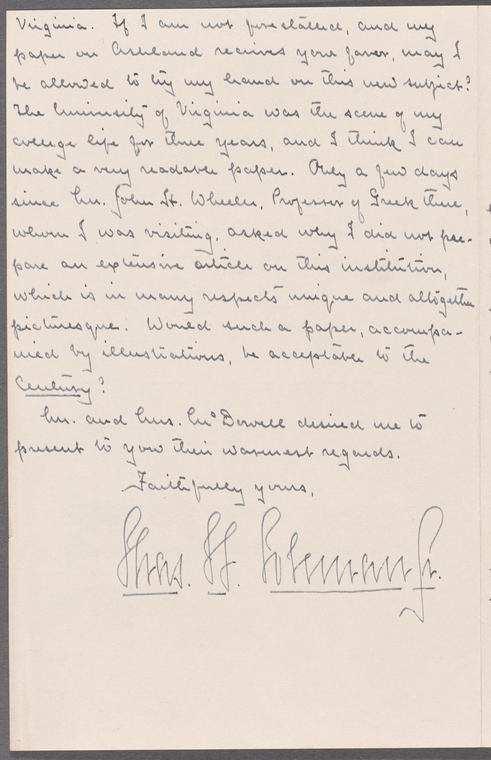 Virginia. If I am not forestalled, and my
paper on Ashland receives your favor, may I
be allowed to try my hand on this new subject?
The University of Virginia was the scene of my
college life for three years, and I think I can
make a very readable paper. Only a few days
since Mr. John H. Wheeler, Professor of Greek there,
whom I was visiting, asked why I did not pre-
pare an extensive article on this institution,
which is in many respects unique and altogether
picturesque. Would such a paper, accompa-
nied by illustrations, be acceptable to the
Century?
Mr. and Mrs. McDowell desired me to
present to you their warmest regards.
Faithfully yours,
Chas. W. Coleman Jr.